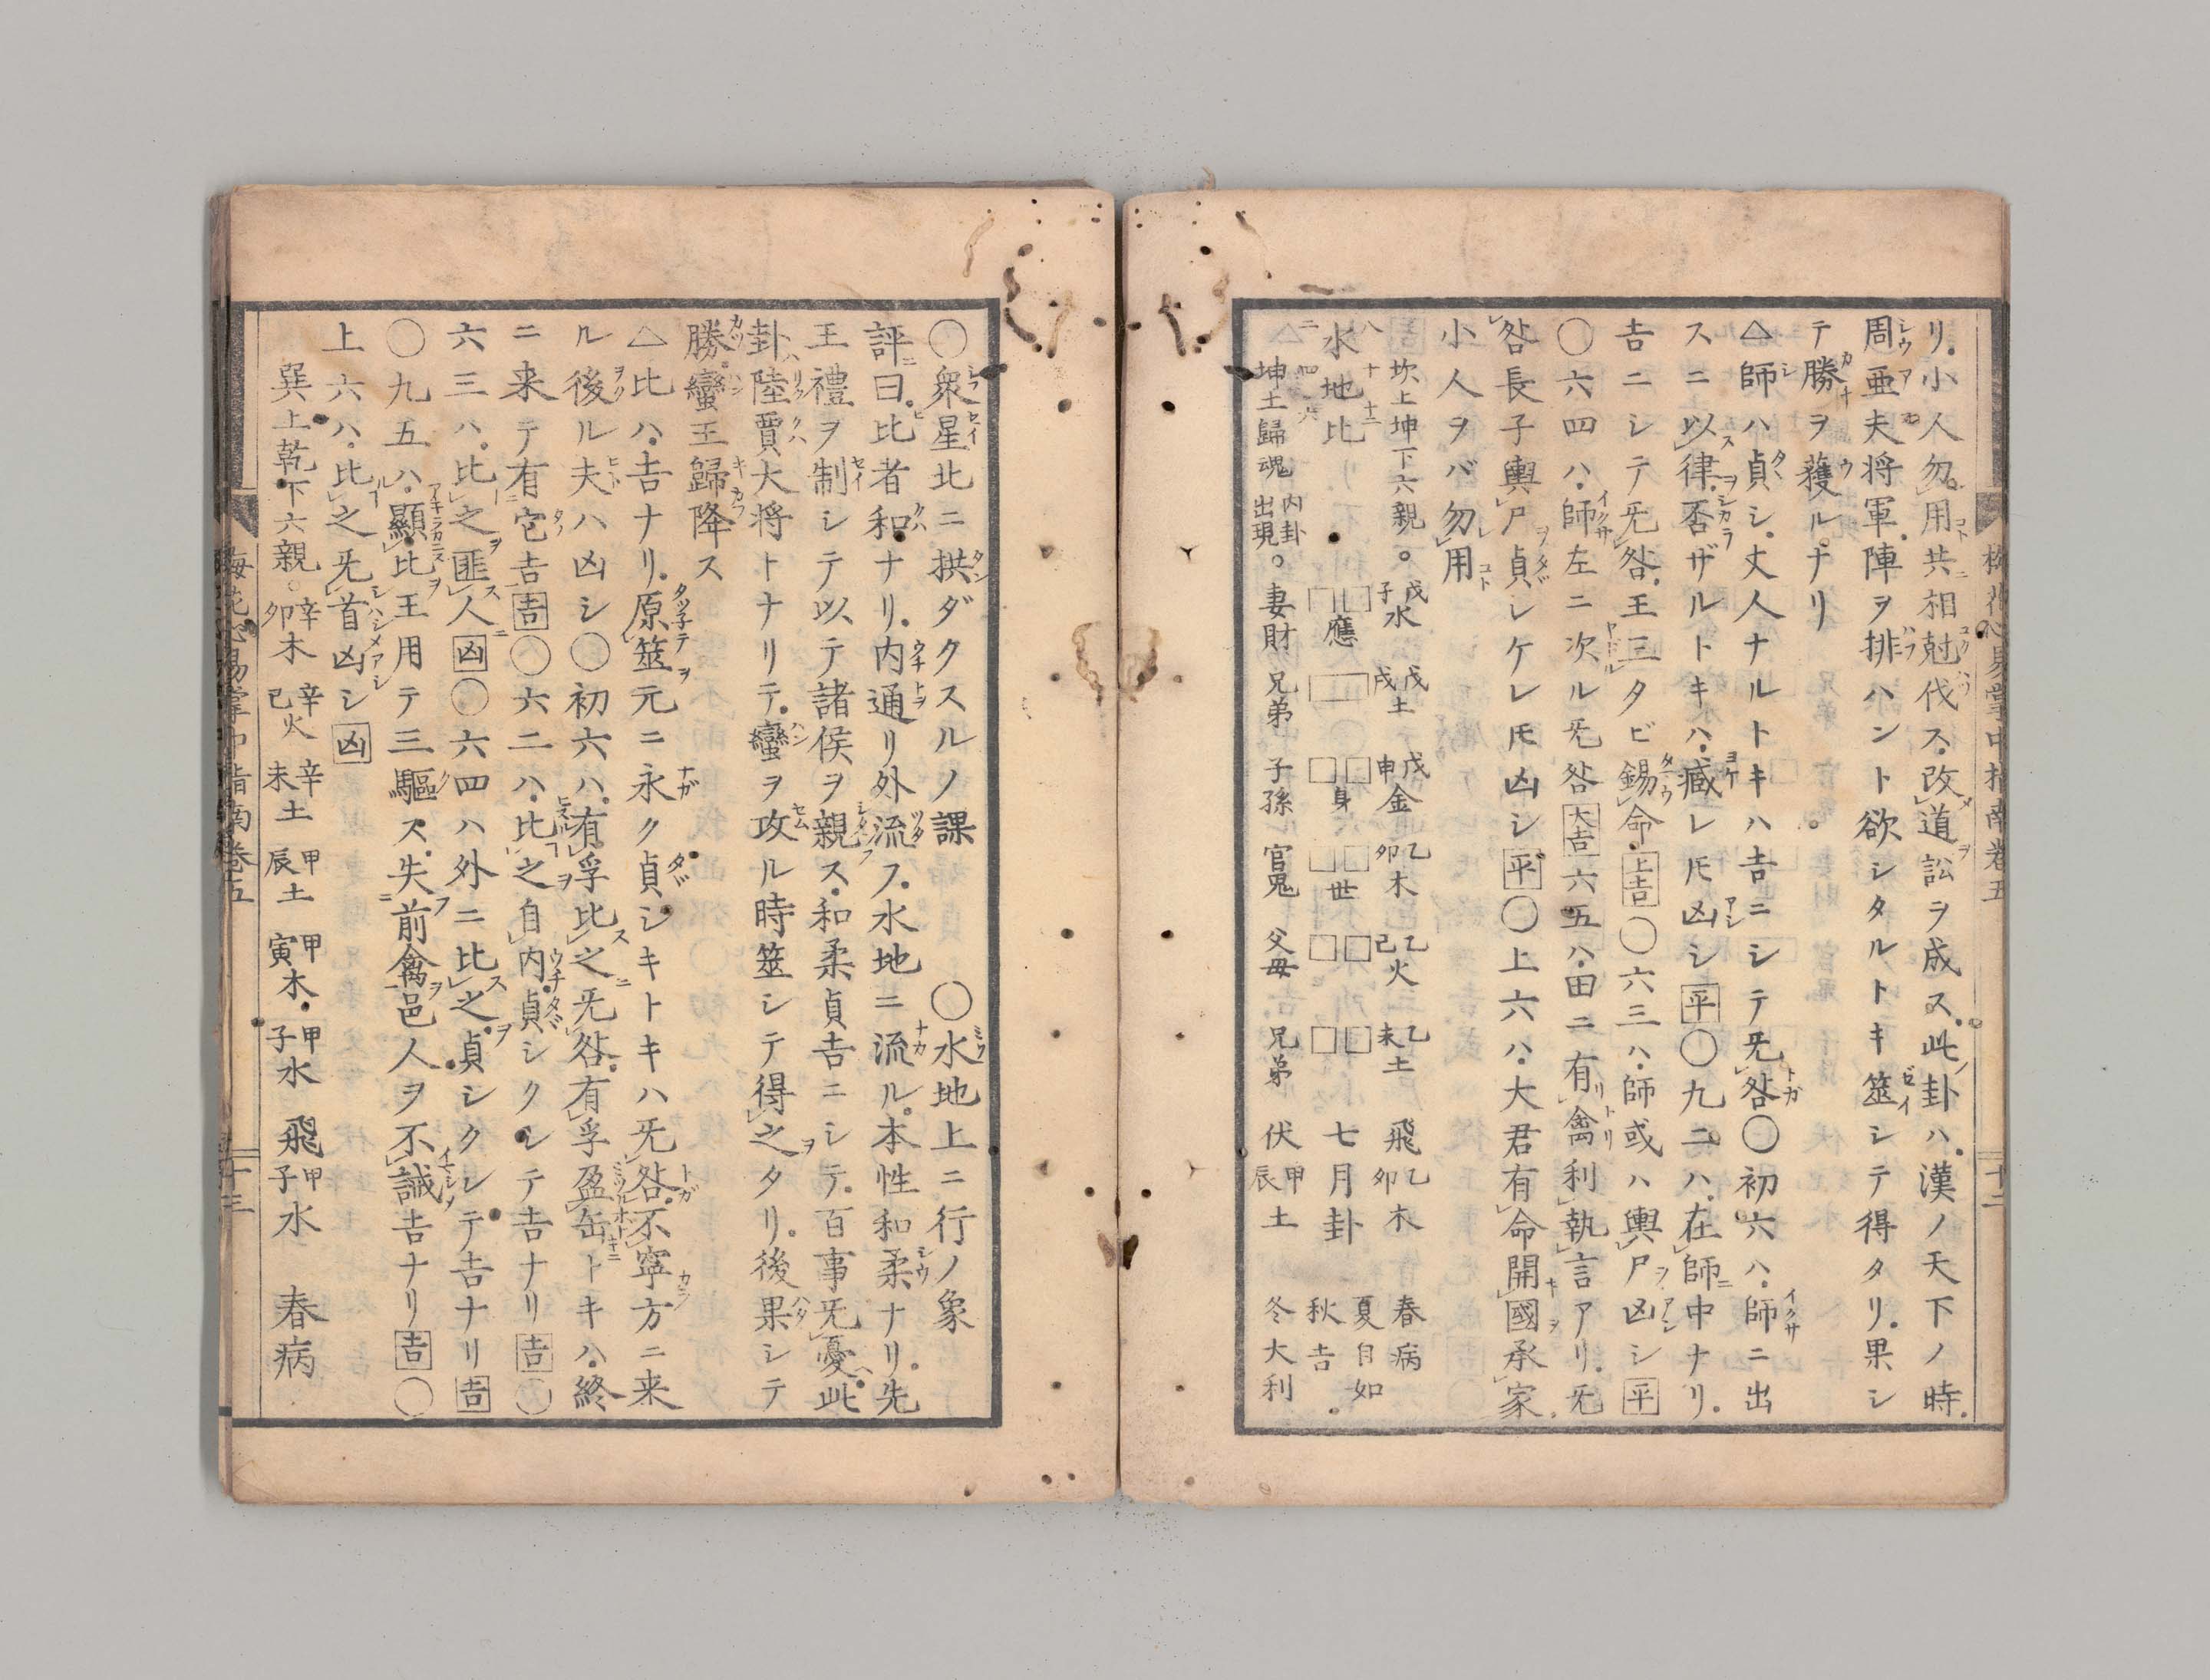 リ小人勿用共相尅伐ス改道訟ヲ成ス此卦ハ漢ノ天下ノ時
周亜夫将軍陣ヲ排ハント欲シタルトキ筮シテ得タリ果シ
テ勝ヲ獲ルナリ
△師ハ貞シ丈人ナルトキハ吉ニシテ旡咎〇初六ハ師ニ出
スニ以律否ザルトキハ臧レ𪜈凶シ平〇九二ハ在師中ナリ
吉ニシテ旡咎王三タビ錫命上吉〇六三ハ師或ハ輿尸凶シ平
〇六四ハ師左ニ次ル旡咎大吉六五ハ田ニ有禽利執言アリ旡
咎長子輿尸貞シケレ𪜈凶シ平〇上六ハ大君有命開國承家
小人ヲバ勿用
坎上坤下六親。戊子水 戊戌土 戊申金 乙卯木 乙巳火 乙未土 飛乙卯木 春病 夏自如
水地比 應 身 世 七月卦 秋吉
坤土歸魂内卦出現。妻財 兄弟 子孫 官鬼 父母 兄弟 伏甲辰土 冬大利
梅花心易掌中指南巻五 十二
〇衆星北ニ拱ダクスルノ課 〇水地上ニ行ノ象
評曰比者和ナリ内通リ外流フ水地ニ流ル本性和柔ナリ先
王禮ヲ制シテ以テ諸侯ヲ親ス和柔貞吉ニシテ百事旡憂此
卦陸賈大将トナリテ蠻ヲ攻ル時筮シテ得之タリ後果シテ
勝蠻王歸降ス
△比ハ吉ナリ原筮元ニ永ク貞シキトキハ旡咎不寧方ニ来
ル後ル夫ハ凶シ〇初六ハ有孚比之旡咎有孚盈缶トキハ終
ニ来テ有它吉吉〇六二ハ比之自内貞シクシテ吉ナリ吉〇
六三ハ比之匪人凶〇六四ハ外ニ比之貞シクシテ吉ナリ吉
〇九五ハ顯比王用テ三驅ス失前禽邑人ヲ不誡吉ナリ吉〇
上六ハ比之旡首凶シ凶
巽上乾下六親。辛卯木 辛巳火 辛未土 甲辰土 甲寅木 甲子水 飛甲子水 春病
梅花心易掌中指南巻五 十三